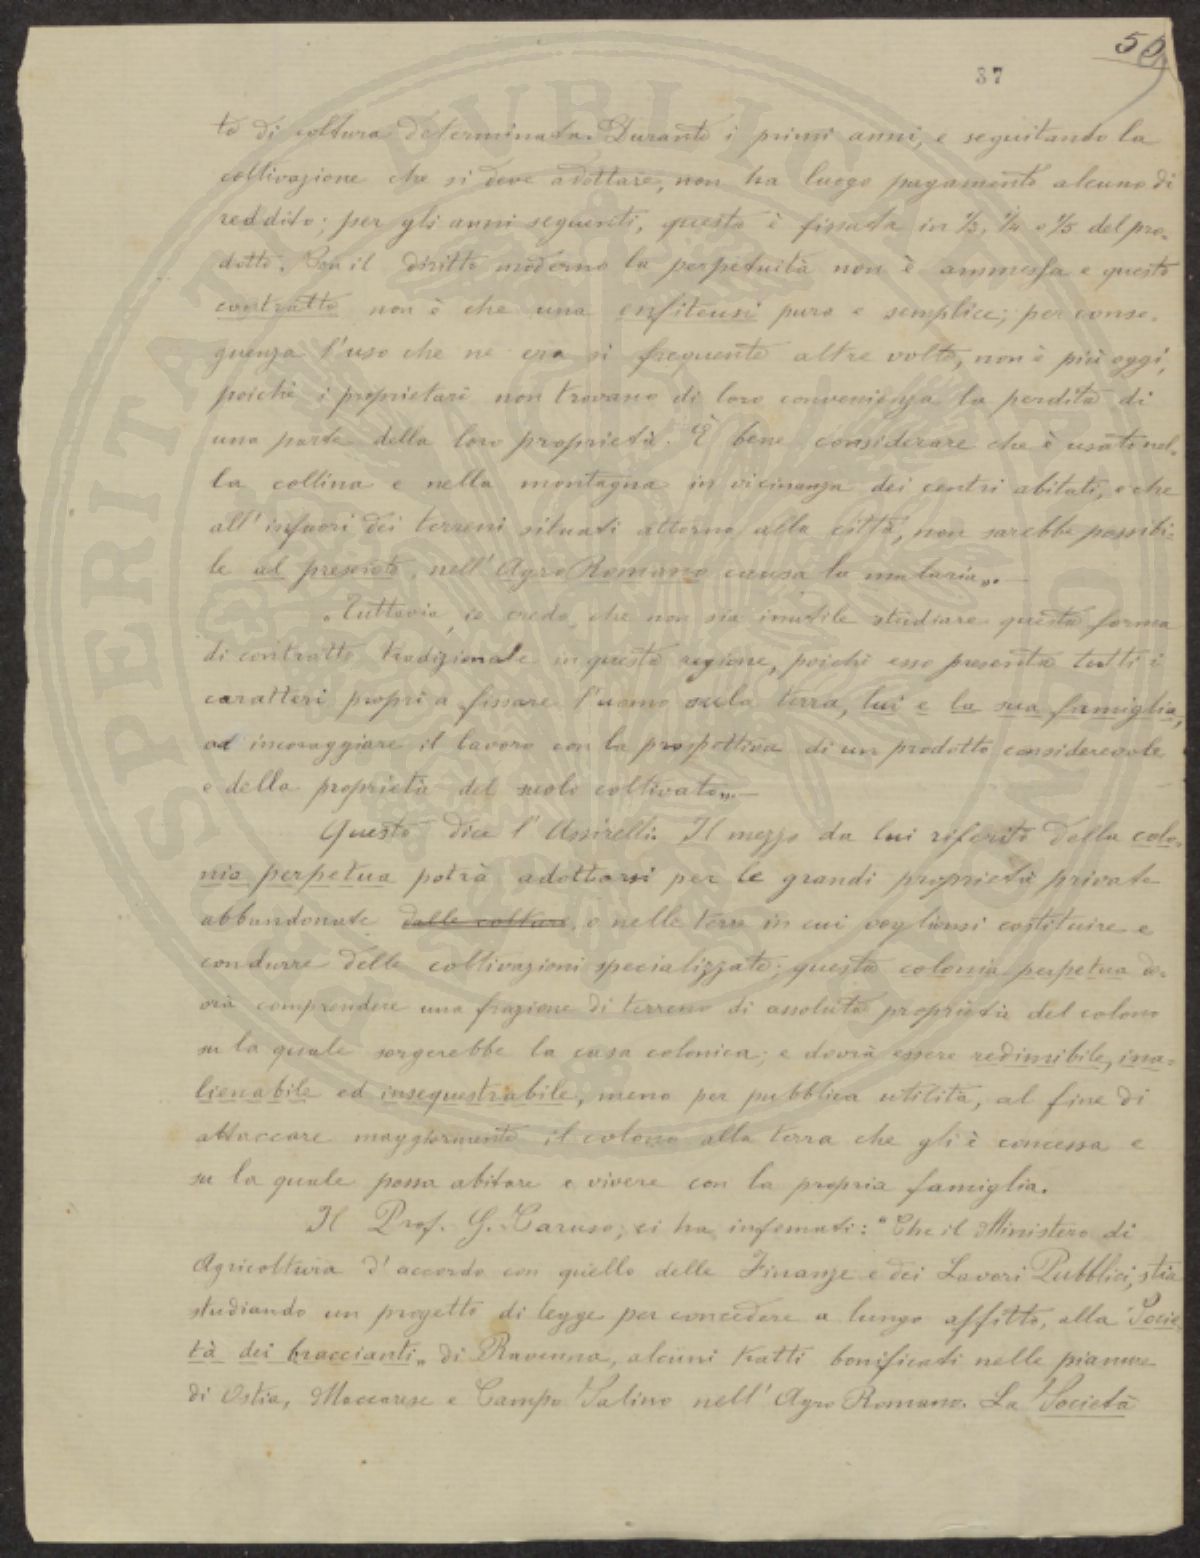 59
37
to di coltura determinata. Durante i primi anni, e seguitando la
coltivazione che si deve adottare, non ha luogo pagamento alcuno di
reddito; per gli anni seguenti, questo è fissata in 1/3, 1/4 o 1/5 del pro-
dotto. Con il diritto moderno la perpetuità non è ammessa e questo
contratto non è che una enfiteusi pura e semplice; per conse-
guenza l'uso che ne era sì frequente altre volte, non è più oggi,
poichè i proprietari non trovano di loro convenienza la perdita di
una parte della loro proprietà. È bene considerare che è usato nel-
la collina e nella montagna in vicinanza dei centri abitati, e che
all'infuori dei terreni situati attorno alla città, non sarebbe possibi-
le al presente, nell'Agro Romano causa la malaria„. —
„Tuttavia, io credo, che non sia inutile studiare questa forma
di contratto tradizionale in questa regione, poichè esso presenta tutti i
caratteri propri a fissare l'uomo sula terra, lui e la sua famiglia,
ad incoraggiare il lavoro con la prospettiva di un prodotto considerevole
e della proprietà del suolo coltivato„. —
Questo dice l'Assirelli. Il mezzo da lui riferito della colo-
nia perpetua potrà adottarsi per le grandi proprietà private
abbandonate dalle colture, o nelle terre in cui vogliansi costituire e
condurre delle coltivazioni specializzate; questa colonia perpetua do-
vrà comprendere una frazione di terreno di assoluta proprietà del colono
su la quale sorgerebbe la casa colonica; e dovrà essere redimibile, ina-
lienabile ed insequestrabile, meno per pubblica utilità, al fine di
attaccare maggiormente il colono alla terra che gli è concessa e
su la quale possa abitare e vivere con la propria famiglia.
Il Prof. G. Caruso, ci ha informati: "Che il Ministero di
Agricoltura d'accordo con quello delle Finanze e dei Lavori Pubblici, stia
studiando un progetto di legge per concedere a lungo affitto, alla Socie
tà dei braccianti„ di Ravenna, alcuni tratti bonificati nelle pianure
di Ostia, Maccarese e Campo Salino nell'Agro Romano. La Società